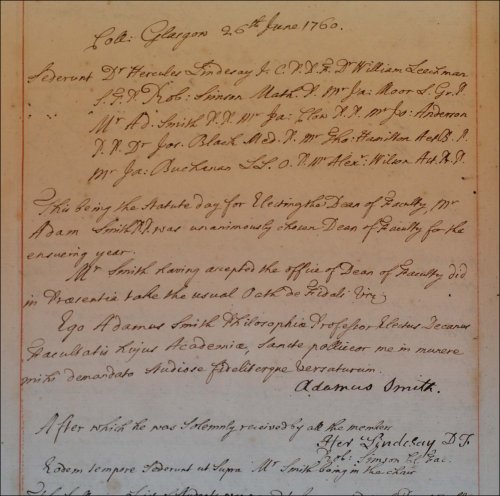 Coll: Glasgow 26th June 1760.
Sederunt Dr Hercules Lindesay J. C. P. Dr William Leechman
S. T. P. Rob: Simson Math. P. Mr Ja: Moor L. Gr. P.
Mr Ad. Smith P. P. Mr Ja: Clow P. P. Mr Jo: Anderson
P. P. Dr Jos: Black Med. P. Mr Tho: Hamilton P.
Mr Ja: Buchanan L. L. O. P. Mr Alexr: Wilson Ast. P.
This being the Statute day for Electing the Dean of Faculty, Mr
Adam Smith P.P. was unanimously chosen Dean of Faculty for the
ensueing year.
Mr Smith having accepted the office of Dean of Faculty did
in Præsentia take the usual Oath de Fideli Viz;
Ego Adamus Smith Philosophiæ Professor Electus Decanus
Facultatis hujus Academiæ, sancte polliceor me in munere
mihi demandato Studiose fideliterque versaturum.
Adamus Smith.
After which he was Solemnly received by all the members
Her: Lindesay D F.
Rob: Simson Cl. Fac.
Eodem tempore Sederunt ut Supra Mr Smith being in the chair